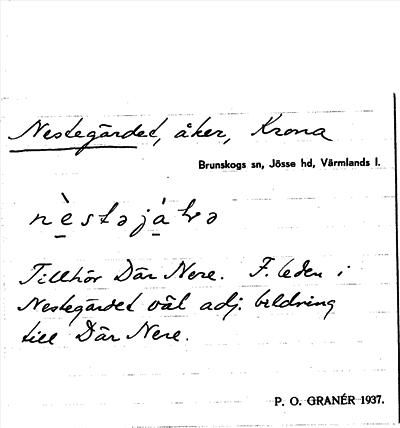 Nestegärdet, åker, Krona
Brunskogs sn, Jösse hd, Värmlands l.
Tillhör Där Nere. F. leden i
Nestegärdet väl adj. bildning
till Där Nere.
P. O. GRANÉR 1937.